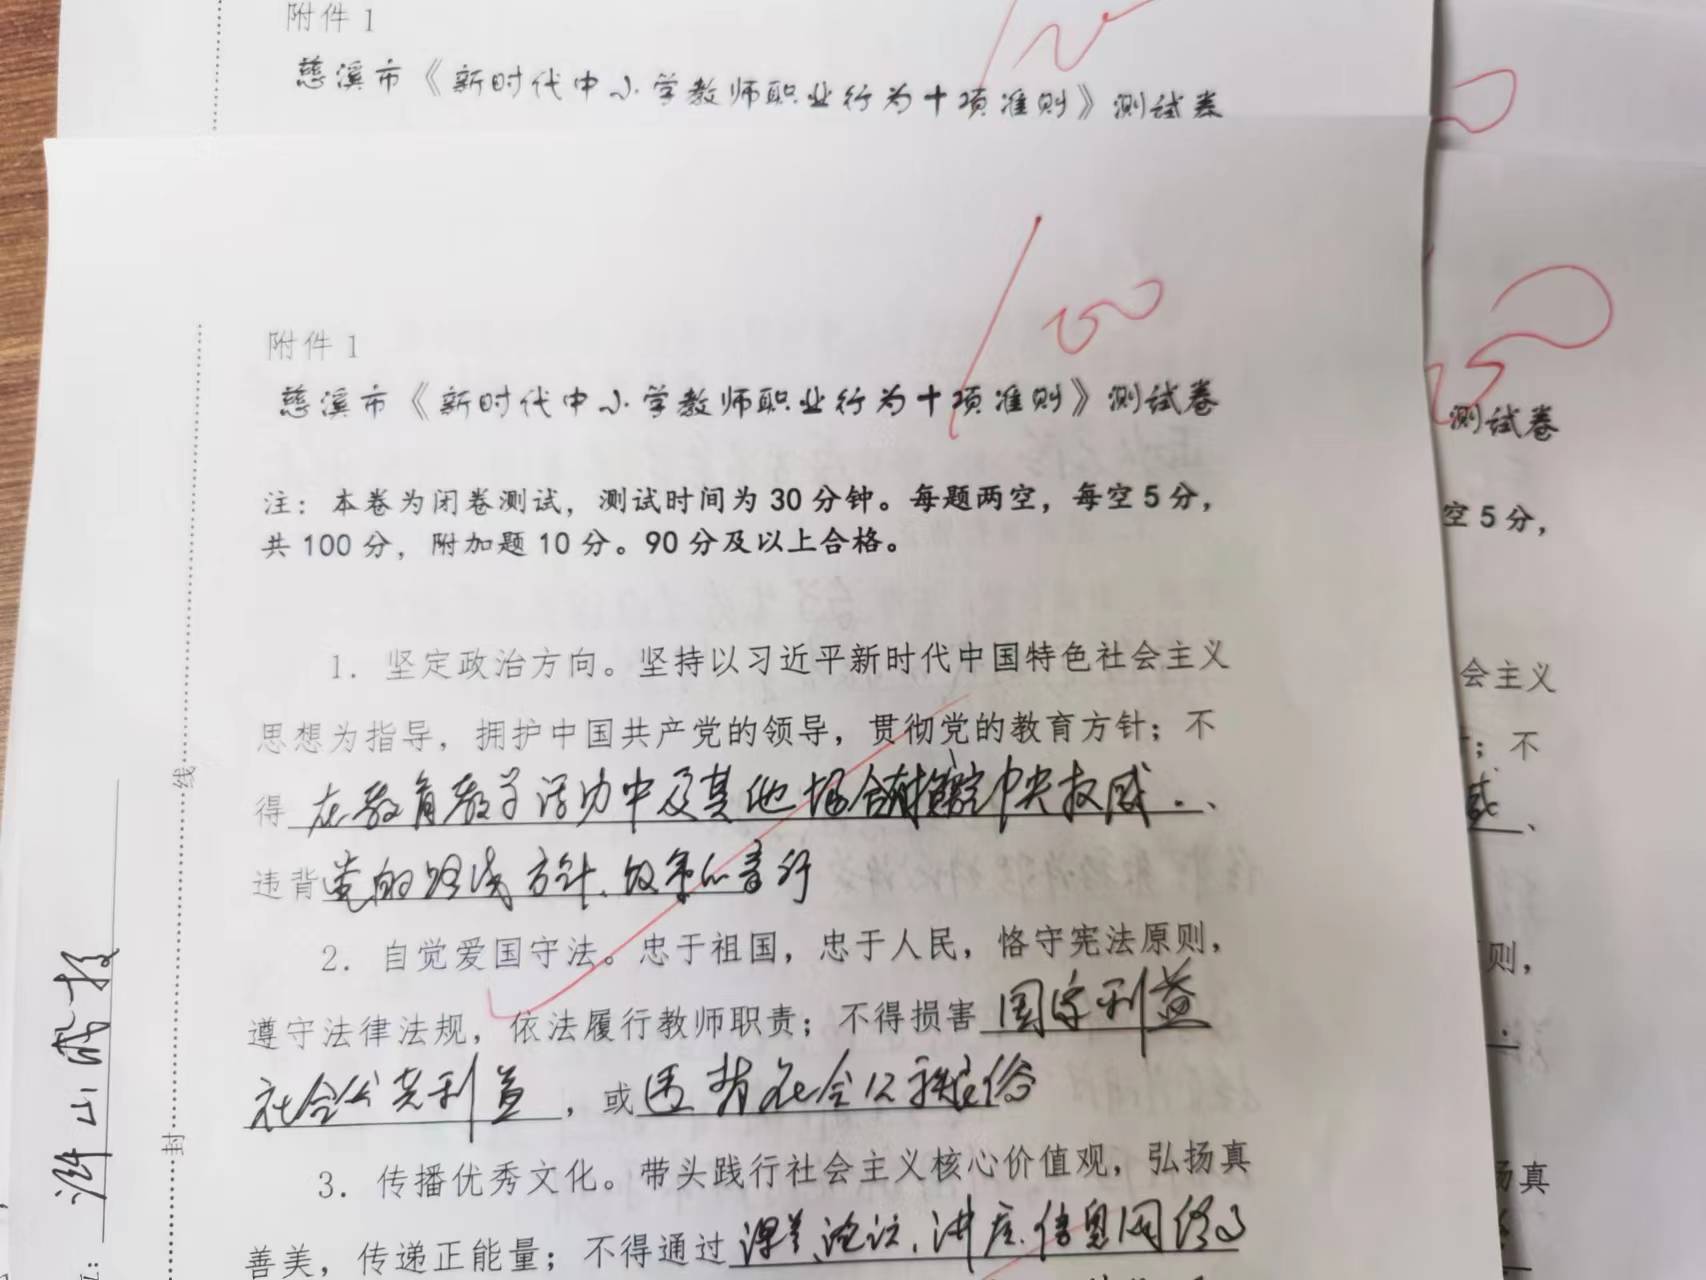 附件 1
慈溪市《新时代中小学教师职业行为十项准则》测试卷
100
附件 1
慈溪市《新时代中小学教师职业行为十项准则》测试卷
测试卷
注：本卷为闭卷测试，测试时间为 30 分钟。每题两空，每空 5 分，
空 5 分，
共 100 分，附加题 10 分。90 分及以上合格。
1. 坚定政治方向。坚持以习近平新时代中国特色社会主义
会主义
思想为指导，拥护中国共产党的领导，贯彻党的教育方针；不
；不
得在教育教学活动中及其他场合有损害党中央权威、
威、
违背党的路线方针、政策的言行
2. 自觉爱国守法。忠于祖国，忠于人民，恪守宪法原则，
则，
遵守法律法规，依法履行教师职责；不得损害国家利益
社会公共利益，或违背社会公序良俗
3. 传播优秀文化。带头践行社会主义核心价值观，弘扬真
扬真
善美，传递正能量；不得通过课堂、论坛、讲座、信息网络
线
封